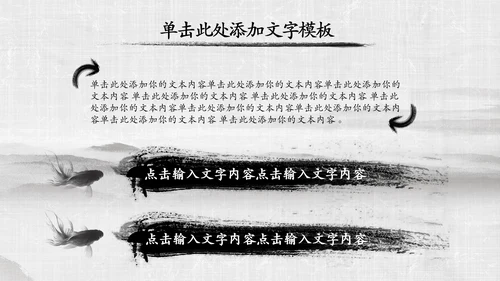 单击此处添加文字模板
单击此处添加你的文本内容单击此处添加你的文本内容单击此处添加你的
文本内容 单击此处添加你的文本内容 单击此处添加你的文本内容 单击此
处添加你的文本内容单击此处添加你的文本内容单击此处添加你的文本内
容单击此处添加你的文本内容 单击此处添加你的文本内容 。
点击输入文字内容点击输入文字内容
点击输入文字内容点击输入文字内容